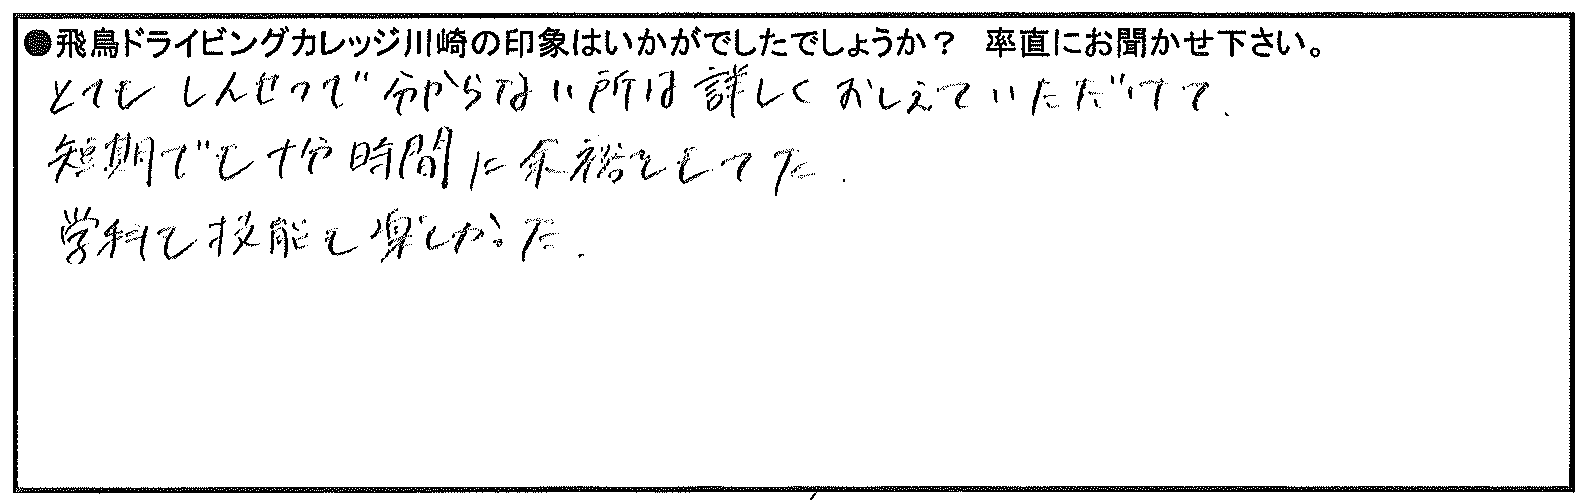 ●飛鳥ドライビングカレッジ川崎の印象はいかがでしたでしょうか？ 率直にお聞かせ下さい。
とてもしんせつで分からない所は詳しくおしえていただけて、
短期でも十分時間に余裕をもてた.
学科も技能も楽しかった.